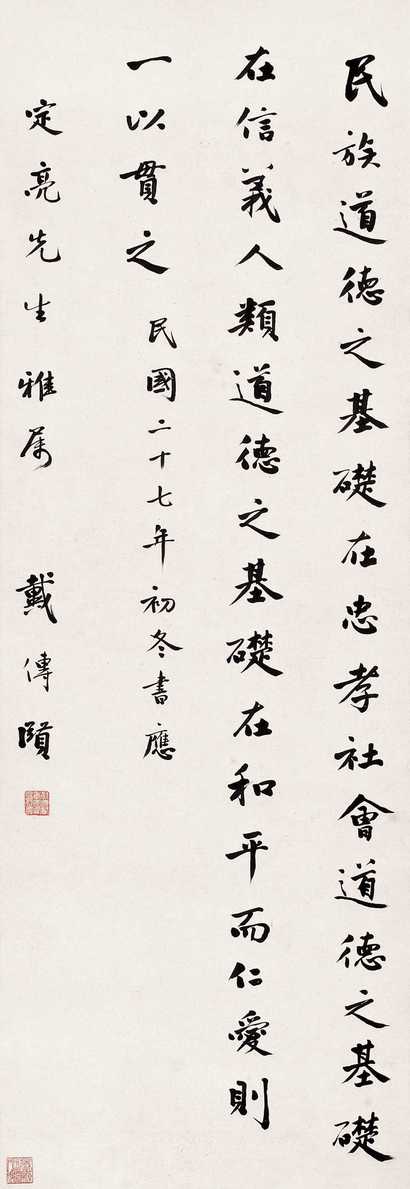 民族道德之基礎在忠孝社會道德之基礎
在信義人類道德之基礎在和平而仁愛則
一以貫之 民國二十七年初冬書應
定亮先生雅属 戴傳賢